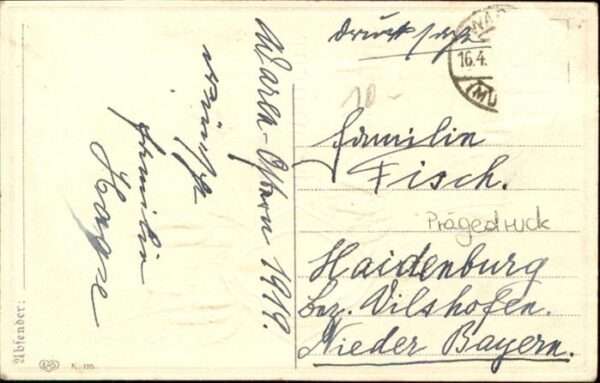 Drucksache
NAC
16.4.
(MÜ
10-
Familie
Fisch.
Prägedruck
Haidenburg
bez. Vilshofen.
Nieder Bayern.
Ostern 1919.
wünscht
Familie
Haase
Absender:
K. 195